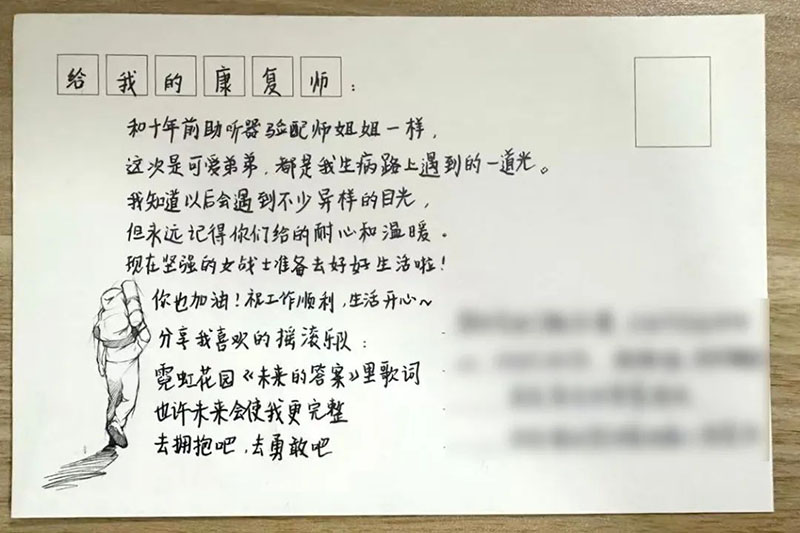 给我的康复师：
和十年前助听器验配师姐姐一样，
这次是可爱弟弟，都是我生病路上遇到的一道光。
我知道以后会遇到不少异样的目光，
但永远记得你们给的耐心和温暖。
现在坚强的女战士准备去好好生活啦！
你也加油！祝工作顺利，生活开心～
分享我喜欢的摇滚乐队：
霓虹花园《未来的答案》里歌词
也许未来会使我更完整
去拥抱吧，去勇敢吧